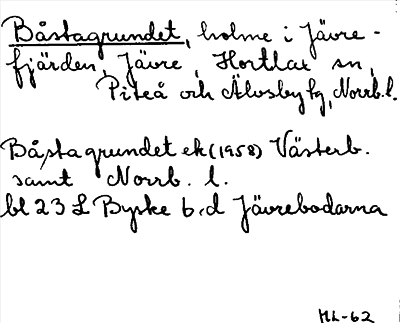 Båstagrundet, holme i Jävre-
fjärden, Jävre, Hortlax sn,
Piteå och Älvsby fg, Norrb. l.
Båstagrundet ek (1958) Västerb.
samt Norrb. l.
bl 23 L Byske b, d Jävrebodarna
ML-62